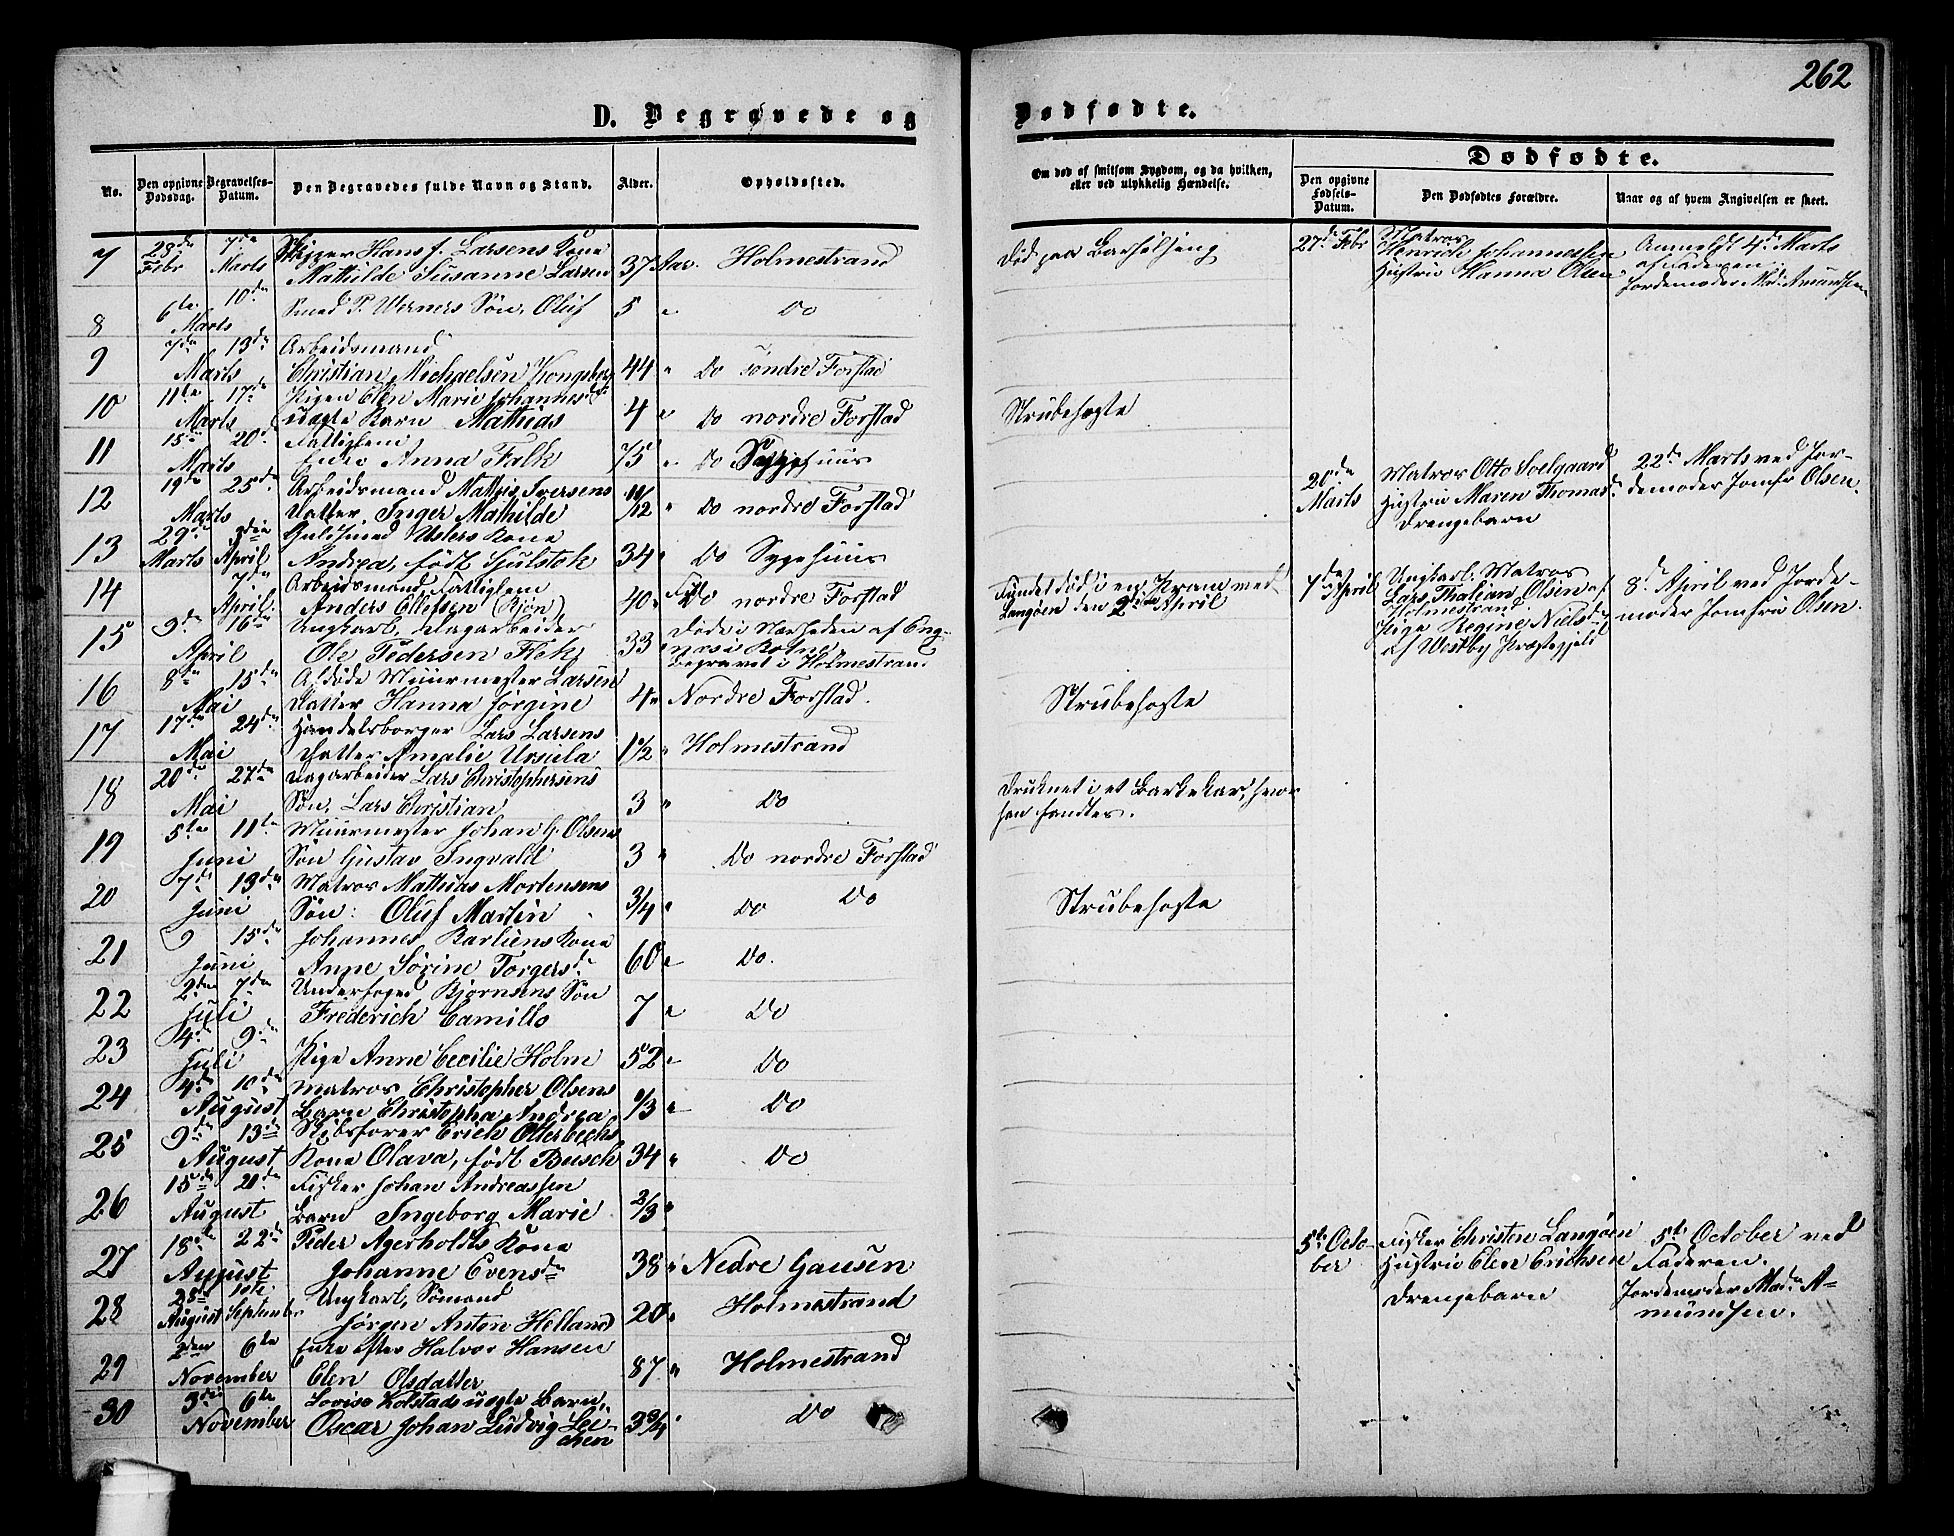 262
D. Begrøvede og Dødfødte.
No.
Den opgivne Dødsdag.
Begravelses-Datum.
Den Begravedes fulde Navn og Stand.
Alder.
Opholdssted.
Om død af smitsom Sygdom, og da hvilken, eller ved ulykkelig Hændelse.
Dødfødte.
Den opgivne Fødsels-Datum.
Den Dødfødtes Forældre.
Naar og af hvem Angivelsen er skeet.
7 28de Febr 7de Marts Skipper Hans J. Larsens Kone
Mathilde Susanne Larsen 37 Aar. Holmestrand
Død paa Barselseng
27de Febr Matros
Henrich Johannessen
Hustrue Hanna Olsen
Anmeldt 4de Marts
af Faderen
Jordemoder Mad. Amundsen
8 6te Marts 10de Smed P. Werners Søn, Oluf 5 " Do
9 7de Marts 13de Arbeidsmand
Christian Michaelsen Kongsberg 44 " Do søndre Forstad
10 11te Marts 17de Pigen Elen Marie Johannesd.
uægte Barn Mathias 4 " Do nordre Forstad
Strubehoste
11 15de Marts 20de Fattiglem
Enke Anna Falk 75 " Do Sygehuus
20de Marts
Matros Otto Solgaard
Hustrue Maren Thomasd.
Drengebarn
22de Marts ved Jor-
demoder Jomfr Olsen.
12 19de Marts 25de Arbeidsmand Mathis Iversens
Datter Inger Mathilde 11/12 " Do nordre Forstad
13 29de Marts 3die April Guldsmed Usters Kone
Andrea, født Gulstok 34 " Do Sygehuus
14 7de April Arbeidsmand, Fattiglem
Anders Ellefsen (Bjøn) 40 " Do nordre Forstad
Fundet død i en Pram ved
Langøen den 2den April
7de April
Ungkarl: Matros
Lars Thalian Olsen af
Holmestrand.
Pige Regine Nielsd.
af Westby Præstegjeld
8de April ved Jorde-
moder Jomfru Olsen.
15 9de April 16de Ungkarl, Dagarbeider
Ole Pedersen Fick 33 Døde i Nærheden af Eng-
næs i Botne,
begravet i Holmestrand
16 8de Mai 15de Afdøde Muurmester Larsens
Datter Hanna Jørgine 4 " Nordre Forstad.
Strubehoste
17 17de Mai 24de Handelsborger Lars Larsens
Datter Amalie Ursula 1 1/2 " Holmestrand
18 20de Mai 27de Dagarbeider Lars Christophersens
Søn, Lars Christian 3 " Do
Druknet i et Barkekar, hvor
han fandtes.
19 5te Juni 11te Muurmester Johan G. Olsens
Søn Gustav Ingvald 3 " Do nordre Forstad
20 7de Juni 13de Matros Mathias Mortensens
Søn: Oluf Martin 3/4 " Do Do
Strubehoste
21 9 Juni 15de Johannes Karliens Kone
Anne Sørine Torgersd. 60 " Do.
22 2den Juli 7de Underfoged Bjørnsens Søn
Frederich Camillo 7 " Do
23 4de Juli 9de Pige Anne Cecilie Holm 52 " Do
24 4de August 10de Matros Christopher Olsens
Barn Christopha Andrea 1/3 " Do
25 9de August 13de Skibsfører Erich Otterbechs
Kone Olava, født Busch 34 " Do
26 15de August 21de Fisker Johan Andreassen
Barn Ingeborg Marie 2/3 "
27 18de August 22de Peder Agerholdts Kone
Johanne Evensd. 38 " Nedre Gausen
5te October
Fisker Christen Langøen
Hustrue Elen Erichsen
Drengebarn
5te October ved
Faderen.
Jordemoder Mad. A-
mundsen.
28 28de August 1ste September Ungkarl, Sømand
Jørgen Anton Helland 20 " Holmestrand
29 2den November 6te Enke efter Halvor Hansen
Elen Olsdatter 87 " Holmestrand
30 3die November 6te Lovise Kolstads uægte Barn,
Oscar Johan Ludvig 3 3/4 " Do